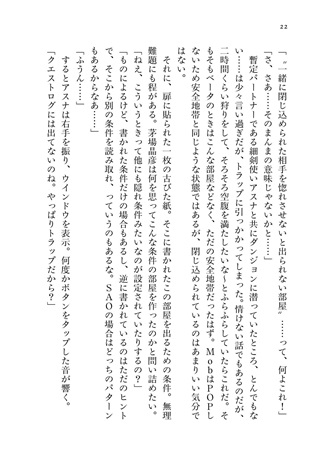 22
「〝一緒に閉じ込められた相手を惚れさせないと出られない部屋〟……って、何よこれ！」
「さ、さあ……そのまんまの意味じゃないかと……」
　暫定パートナーである細剣使いアスナと共にダンジョンに潜っていたところ、とんでもな
い……は少々言い過ぎだが、トラップに引っかかってしまった。情けない話でもあるのだが、
二時間くらい狩りをして、そろそろ空腹を満たしたいなーとふらふらしていたらこれだ。そ
もそもベータのときはこんな部屋などなく、ただの安全地帯だったはず。MobはPOPし
ないため安全地帯と同じような状態ではあるが、閉じ込められているのはあまりいい気分で
はない。
　それに、扉に貼られた一枚の古びた紙。そこに書かれたこの部屋を出るための条件。無理
難題にも程がある。茅場晶彦は何を思ってこんな条件の部屋を作ったのかと問い詰めたい。
「ねえ、こういうときって他にも隠れ条件みたいなのが設定されていたりするの？」
「ものによるけど、書かれた条件だけの場合もあるし、逆に書かれているのはただのヒント
で、そこから別の条件を読み取れ、っていうのもあるな。SAOの場合はどっちのパターン
もあるからなあ……」
「ふうん……」
　するとアスナは右手を振り、ウインドウを表示。何度かボタンをタップした音が響く。
「クエストログには出てないのね。やっぱりトラップだから？」